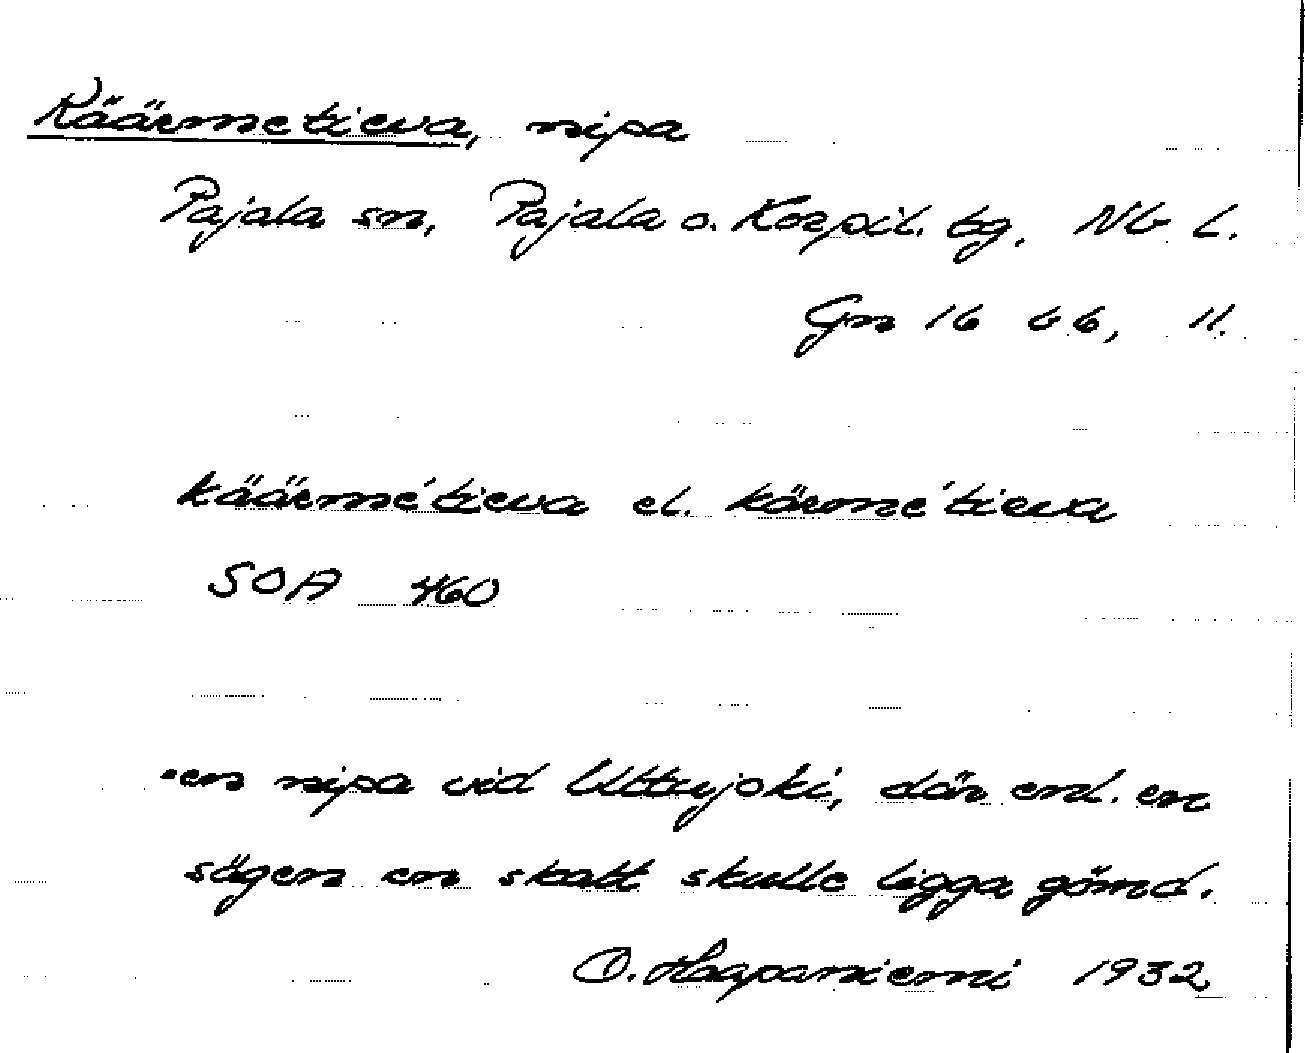 Käärmetieva, nipa
Pajala sn, Pajala o. Korpil. tg. Nb L.
Gn 16 66, 11.
käärmétieva el. kärmétieva
SOA 460
"en nipa vid Uttujoki, där enl. en
sägen en skatt skulle ligga gömd.
O. Haapaniemi 1932